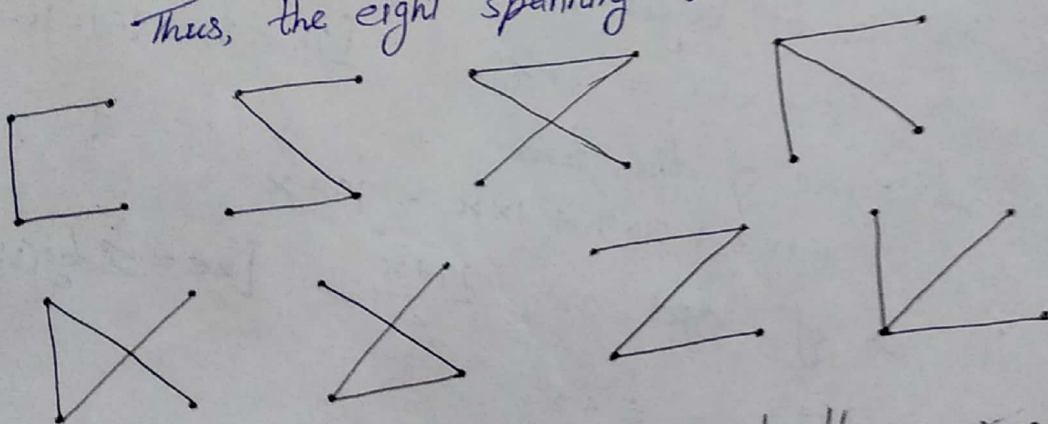 Thus, the eight spanning